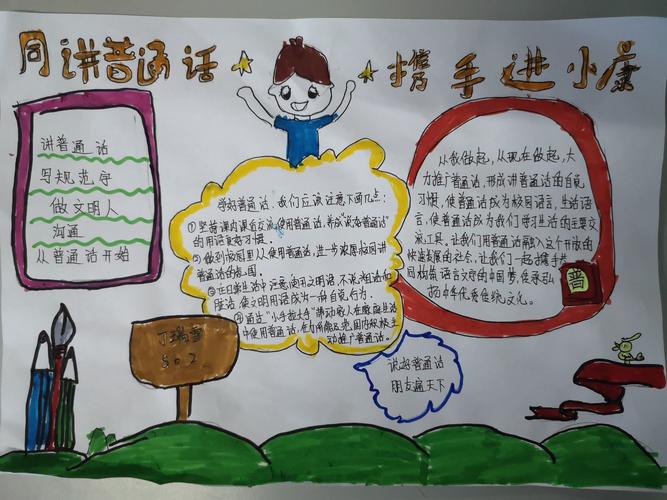 同讲普通话 携手进小康
讲普通话
写规范字
做文明人
沟通
从普通话开始
学好普通话，我们应该注意下面几点：
①坚持课内课后交流使用普通话，养成"说好普通话"
的用语良好习惯。
②做到校园里人人使用普通话，进一步浓厚校园讲
普通话的氛围。
③在日常生活中注意使用文明语，不说粗话和
脏话，使文明用语成为一种自觉行为。
④通过"小手拉大手"带动家人在家庭生活
中使用普通话，在力所能及范围内积极主
动推广普通话。
从我做起，从现在做起，大
力推广普通话，形成讲普通话的自觉
习惯，使普通话成为校园语言，生活语
言，使普通话成为我们学习生活的主要交
流工具，让我们用普通话融入这个开放的
快速发展的社会，让我们一起携手共
同构筑语言文字的中国梦，传承弘
扬中华优秀传统文化。
普
502
说好普通话
朋友遍天下